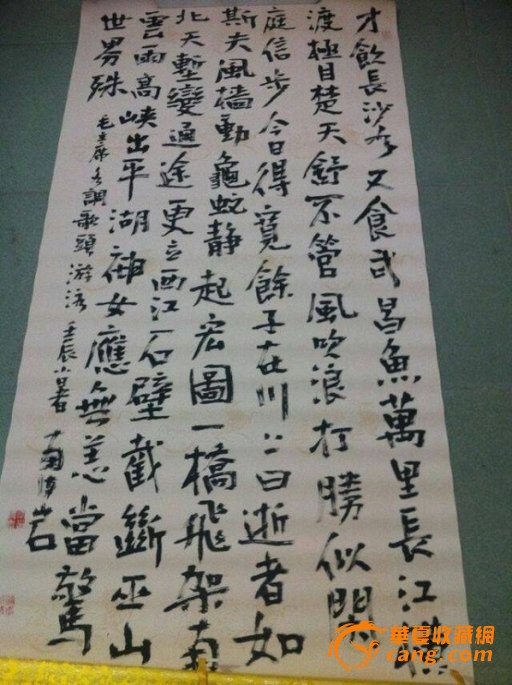 才飲長沙水又食武昌魚萬里長江橫
渡極目楚天舒不管風吹浪打勝似閒
庭信步今日得寬餘子在川上曰逝者如
斯夫風檣動龜蛇静起宏圖一橋飛架南
北天塹變通途更立西江石壁截斷巫山
雲雨高峽出平湖神女應無恙當驚
世界殊 毛主席水調歌頭游泳 壬辰小暑
華夏收藏網
cang.com